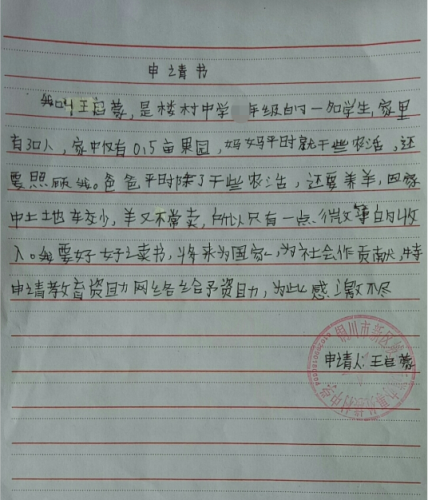 申请书
我叫王启蒙,是楼村中学 年级的一名学生,家里
有3口人,家中仅有0.5亩果园,妈妈平时就干些农活,还
要照顾我。爸爸平时除了干些农活,还要养羊,因家
中土地较少,羊又不常卖,所以只有一点微薄的收
入。我要好好读书,将来为国家,为社会作贡献,特
申请教育资助网络给予资助,为此感激不尽
申请人:王启蒙